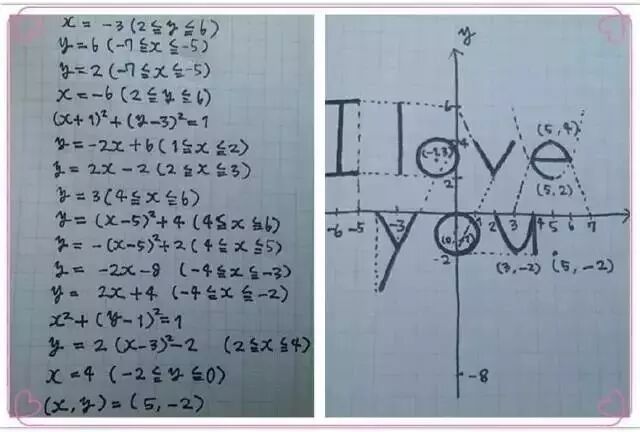 x = -3 (2 ≦ y ≦ 6)
y = 6 (-7 ≦ x ≦ -5)
y = 2 (-7 ≦ x ≦ -5)
x = -6 (2 ≦ y ≦ 6)
(x+1)² + (y-3)² = 1
y = -2x + 6 (1 ≦ x ≦ 2)
y = 2x - 2 (2 ≦ x ≦ 3)
y = 3 (4 ≦ x ≦ 6)
y = (x-5)² + 4 (4 ≦ x ≦ 6)
y = -(x-5)² + 2 (4 ≦ x ≦ 5)
y = -2x - 8 (-4 ≦ x ≦ -3)
y = 2x + 4 (-4 ≦ x ≦ -2)
x² + (y-1)² = 1
y = 2(x-3)² - 2 (2 ≦ x ≦ 4)
x = 4 (-2 ≦ y ≦ 0)
(x, y) = (5, -2)
y
6
I love
(5, 4)
4
(-1, 3)
2
(5, 2)
-6 -5 -3 1 2 3 4 5 6 7
you
-2
(3, -2)
(5, -2)
-8